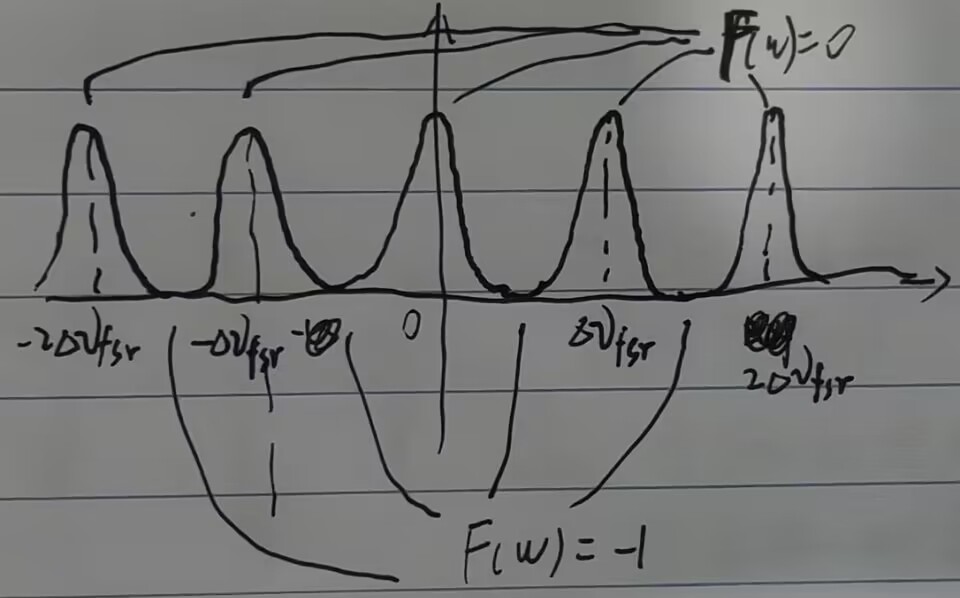 F(w)=0
-2Δνfsr -Δνfsr 0 Δνfsr 2Δνfsr
F(w)=-1